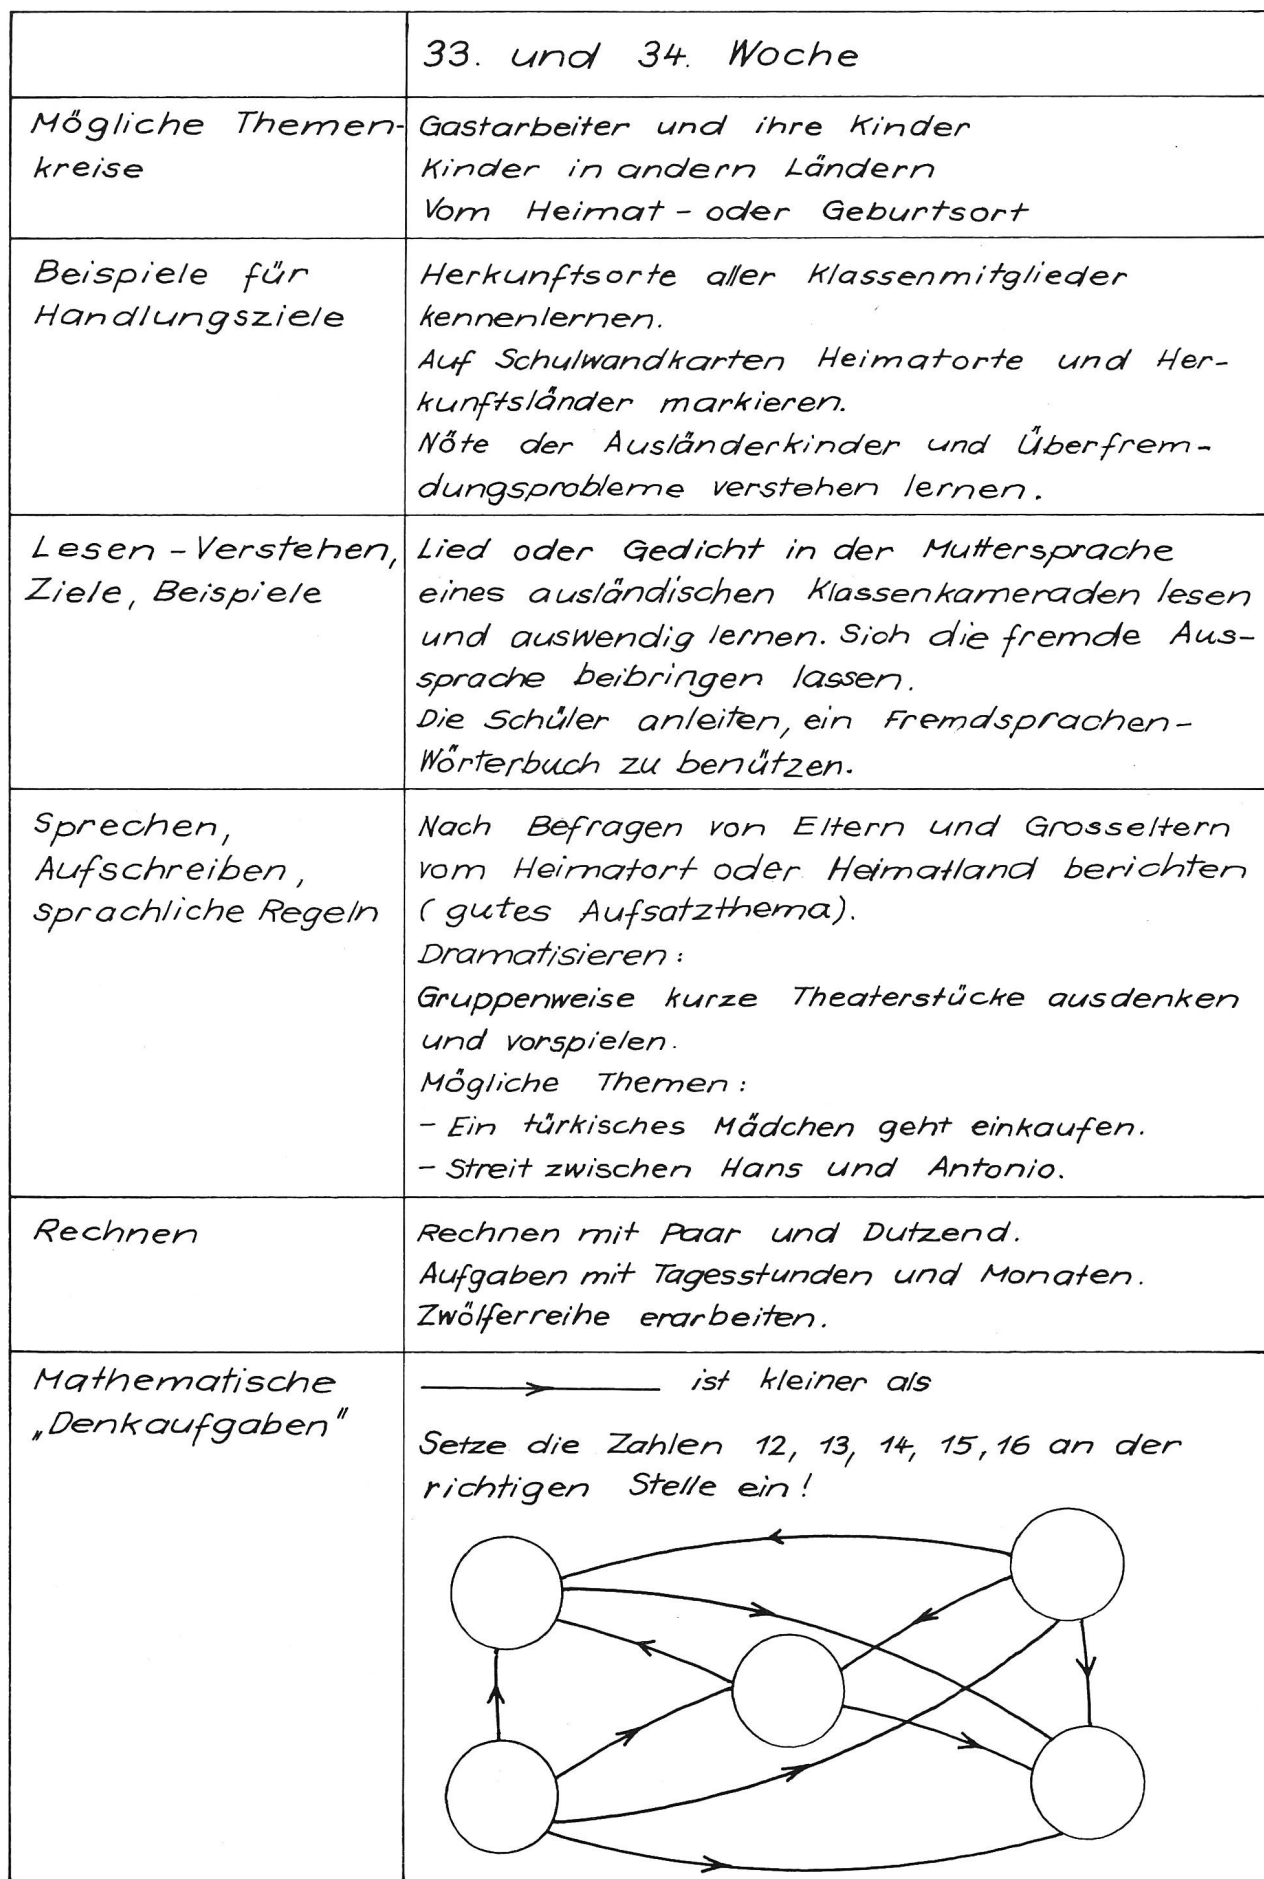 33. und 34. Woche
Mögliche Themen-
kreise
Gastarbeiter und ihre Kinder
Kinder in andern Ländern
Vom Heimat- oder Geburtsort
Beispiele für
Handlungsziele
Herkunftsorte aller Klassenmitglieder
kennenlernen.
Auf Schulwandkarten Heimatorte und Her-
kunftsländer markieren.
Nöte der Ausländerkinder und Überfrem-
dungsprobleme verstehen lernen.
Lesen - Verstehen,
Ziele, Beispiele
Lied oder Gedicht in der Muttersprache
eines ausländischen Klassenkameraden lesen
und auswendig lernen. Sich die fremde Aus-
sprache beibringen lassen.
Die Schüler anleiten, ein Fremdsprachen-
Wörterbuch zu benützen.
Sprechen,
Aufschreiben,
sprachliche Regeln
Nach Befragen von Eltern und Grosseltern
vom Heimatort oder Heimatland berichten
(gutes Aufsatzthema).
Dramatisieren:
Gruppenweise kurze Theaterstücke ausdenken
und vorspielen.
Mögliche Themen:
- Ein türkisches Mädchen geht einkaufen.
- Streit zwischen Hans und Antonio.
Rechnen
Rechnen mit Paar und Dutzend.
Aufgaben mit Tagesstunden und Monaten.
Zwölferreihe erarbeiten.
Mathematische
„Denkaufgaben"
ist kleiner als
Setze die Zahlen 12, 13, 14, 15, 16 an der
richtigen Stelle ein!